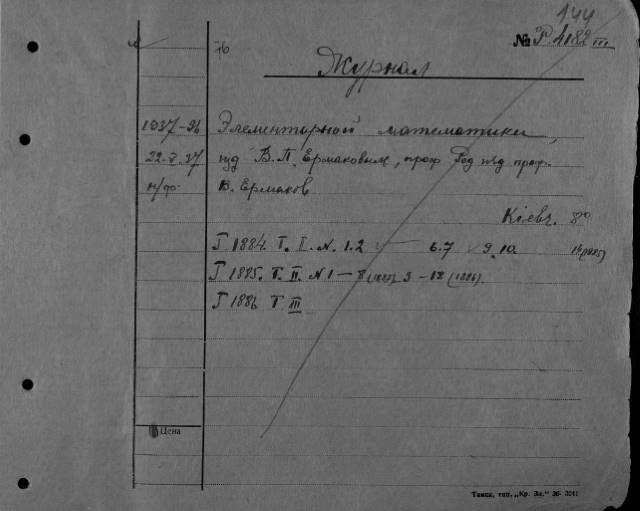 144
№ Р 4182 III
76
Журнал
1937-96 Элементарной математики,
22-V-37 изд В. П. Ермаковым, проф Ред изд проф.
н/фо В. Ермаков
Кіевъ. 8º
Г 1884. Т. I. N. 1.2 — 6.7 9.10 14(1885)
Г 1885. Т. II. N 1 — 8 9 — 18 (1886).
Г 1886 Т. III
Цена
Тамск. тип. „Кр. Зн."